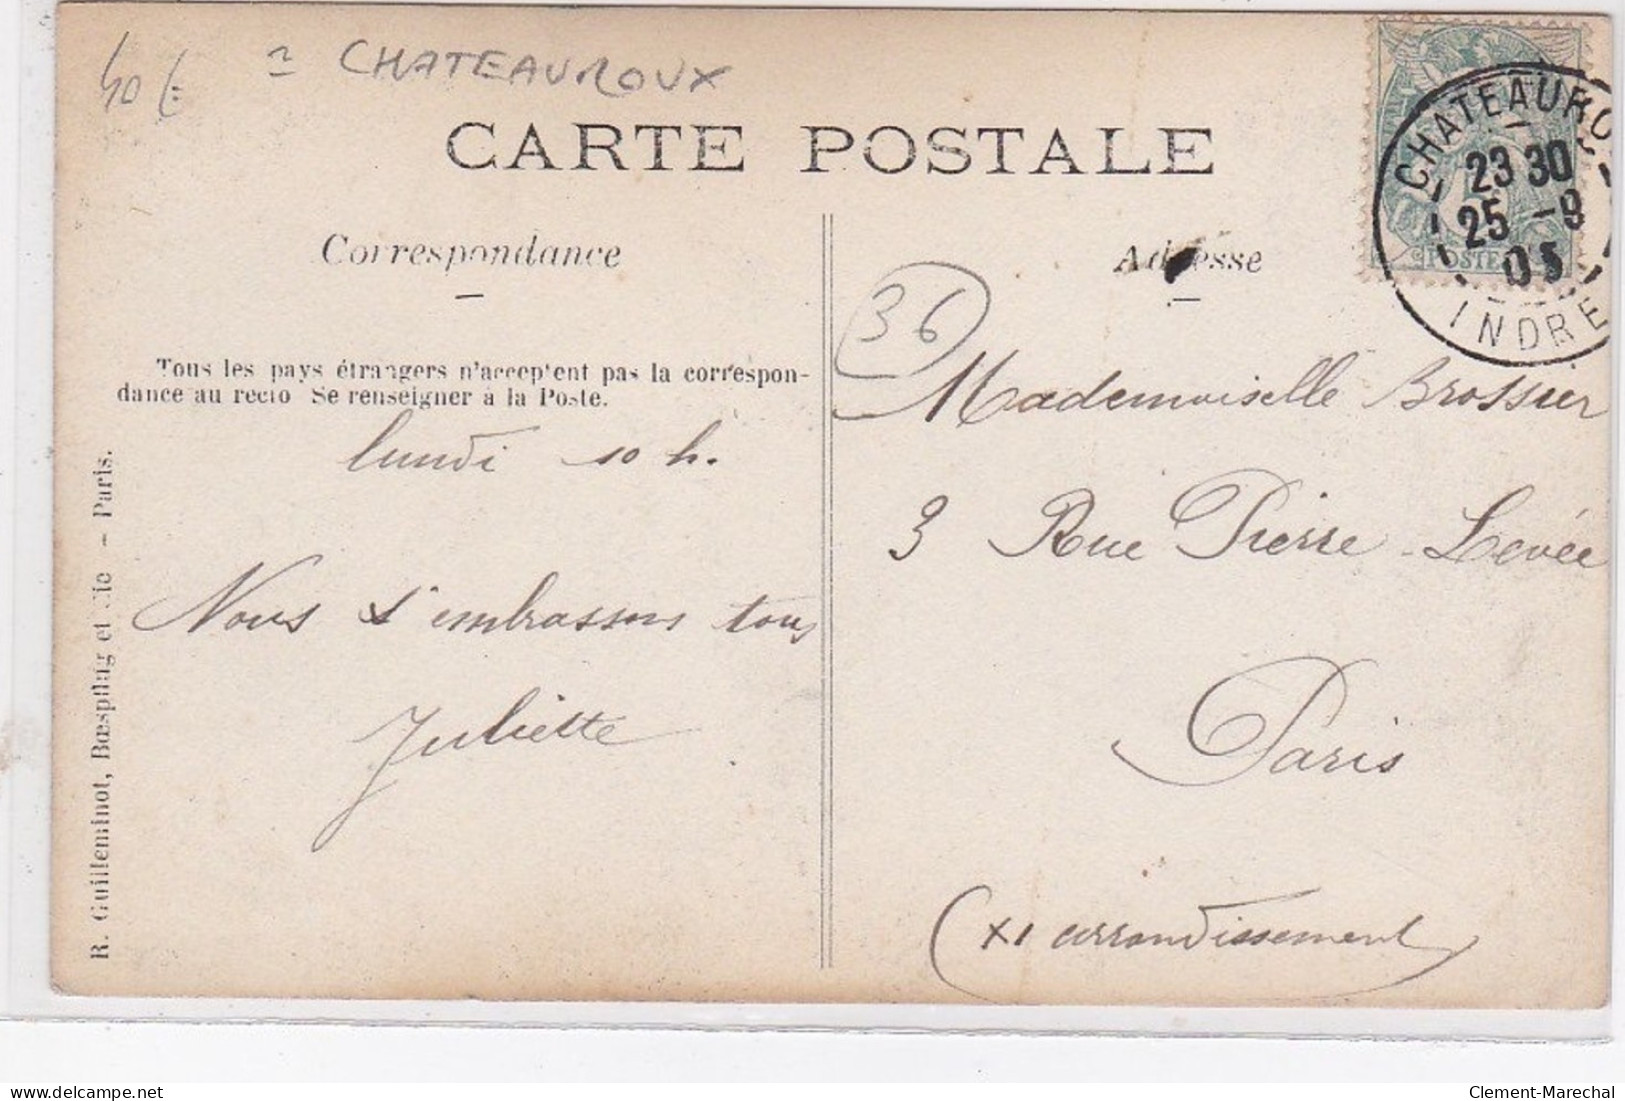 40 €
CHATEAUROUX
CARTE POSTALE
CHATEAURO
23 30
25 -9
05
INDRE
POSTES
Correspondance
Adresse
36
Tous les pays étrangers n'acceptent pas la correspon-
dance au recto Se renseigner à la Poste.
lundi 10 h.
Nous t'embrassons tous
Juliette
Mademoiselle Brossier
3 Rue Pierre Levée
Paris
(XI arrondissement)
R. Guilleminot, Bœspflug et Cie – Paris.
Clement-Marechal